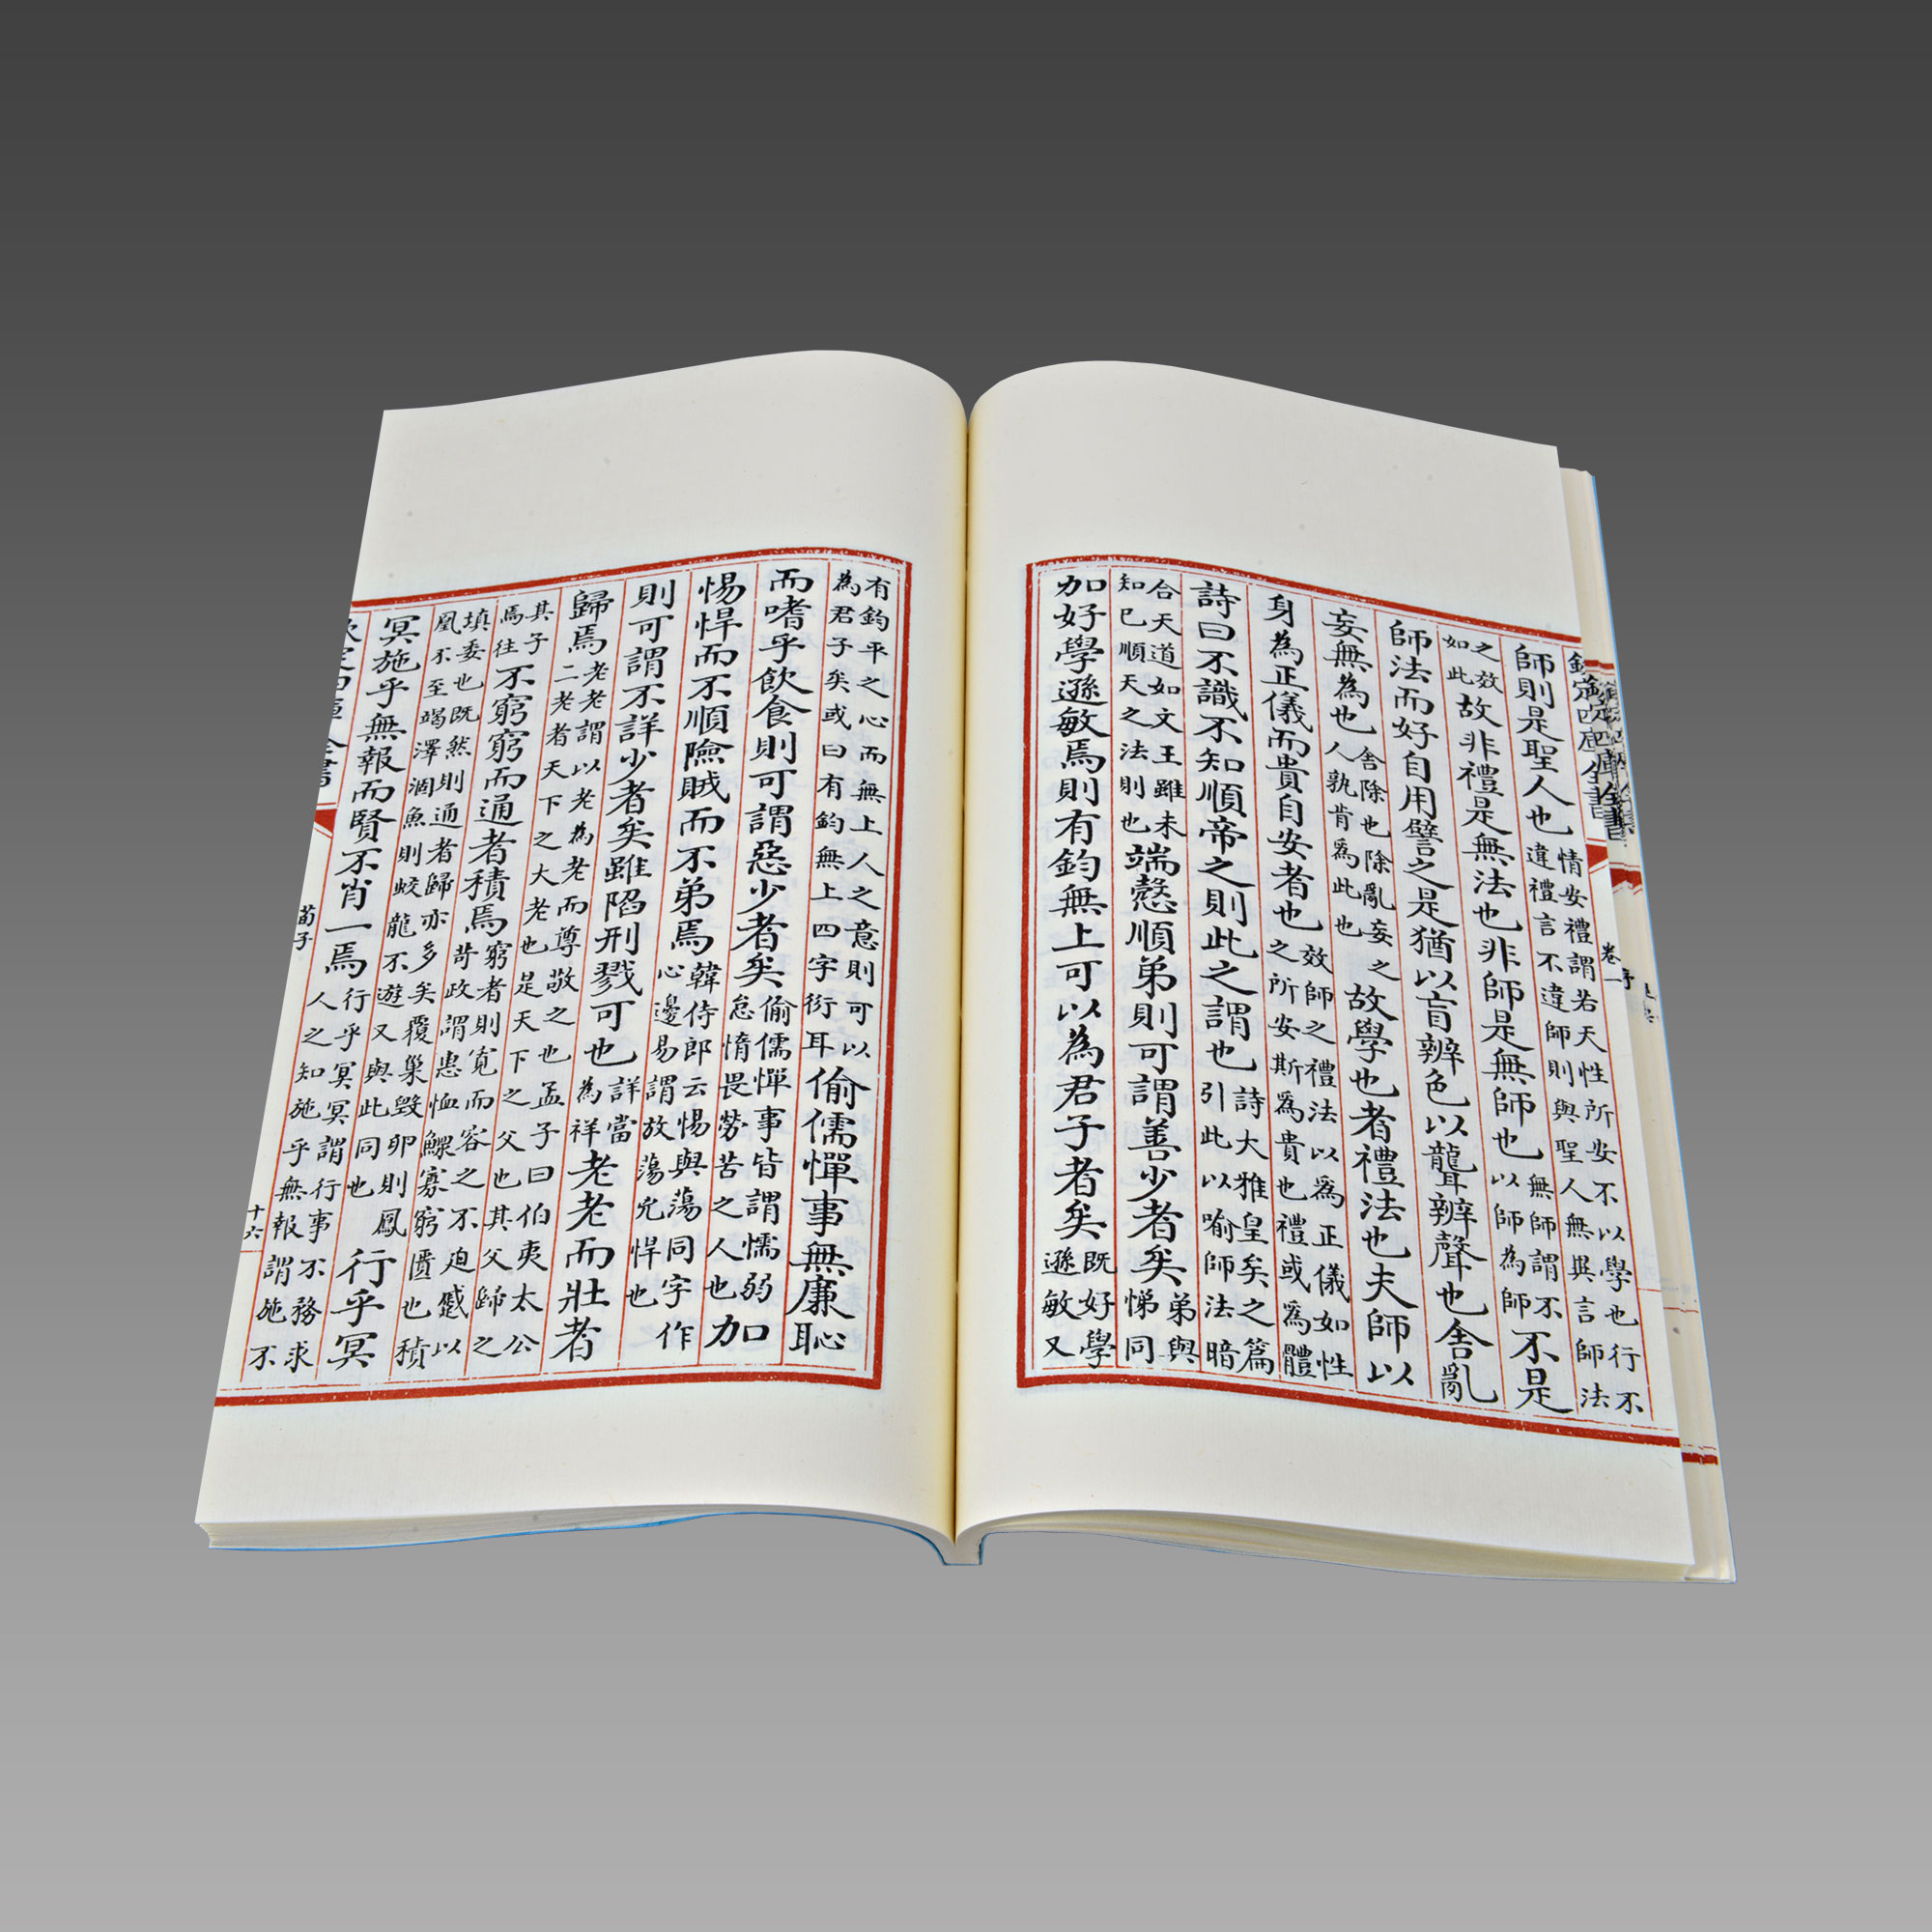 欽定四庫全書
卷一
師則是聖人也情安禮謂若天性所安不以學也行不違禮言不違師則與聖人無異言師法
之效如此故非禮是無法也非師是無師也無師謂不以師為師不是
師法而好自用譬之是猶以盲辨色以聾辨聲也舍亂
妄無為也舍除也除亂妄之人孰肯爲此也故學也者禮法也夫師以
身為正儀而貴自安者也效師之禮法以爲正儀如性之所安斯爲貴也禮或爲體
詩曰不識不知順帝之則此之謂也詩大雅皇矣之篇引此以喻師法暗
合天道如文王雖未知已順天之法則也端慤順弟則可謂善少者矣弟與悌同
加好學遜敏焉則有鈞無上可以為君子者矣既好學遜敏又
有鈞平之心而無上人之意則可以為君子矣或曰有鈞無上四字衍耳偷儒憚事無廉恥
而嗜乎飲食則可謂惡少者矣偷儒憚事皆謂懦弱怠惰畏勞苦之人也加
惕悍而不順險賊而不弟焉韓侍郎云惕與蕩同字作心邊易謂放蕩兇悍也
則可謂不詳少者矣雖陷刑戮可也詳當為祥老老而壯者
歸焉老老謂以老為老而尊敬之也孟子曰伯夷太公二老者天下之大老也是天下之父也其父歸之
其子焉往不窮窮而通者積焉窮者則寛而容之不迫蹙以苛政謂患恤鰥寡窮匱也積
填委也既然則通者歸亦多矣覆巢毀卵則鳳凰不至竭澤涸魚則蛟龍不遊又與此同也行乎冥
冥施乎無報而賢不肖一焉行乎冥冥謂行事不務求人之知施乎無報謂施不
荀子
十六